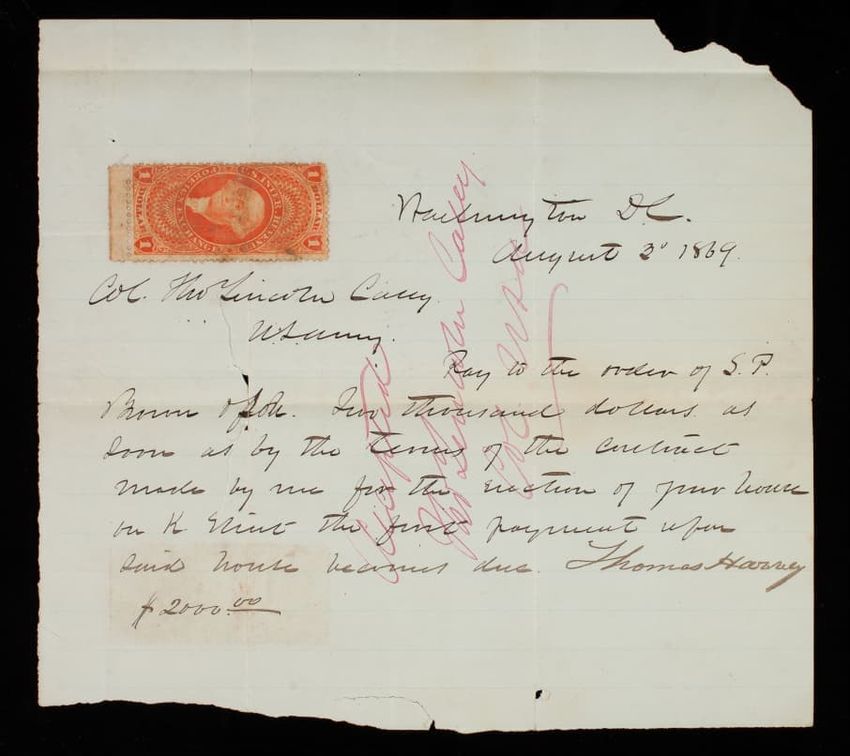 Washington D.C.
August 3d 1869.
Col. Thos Lincoln Casey
U.S. Army.
Pay to the order of S. P.
Brown & Son. Two thousand dollars as
soon as by the terms of the contract
made by me for the erection of your house
on K Street the first payment upon
said house becomes due. Thomas Harvey
$2000.00
Accepted
Thos Lincoln Casey
Col USA
1 DOLLAR 1
FOREIGN EXCHANGE
U.S. INTER. REVENUE
1 DOLLAR 1